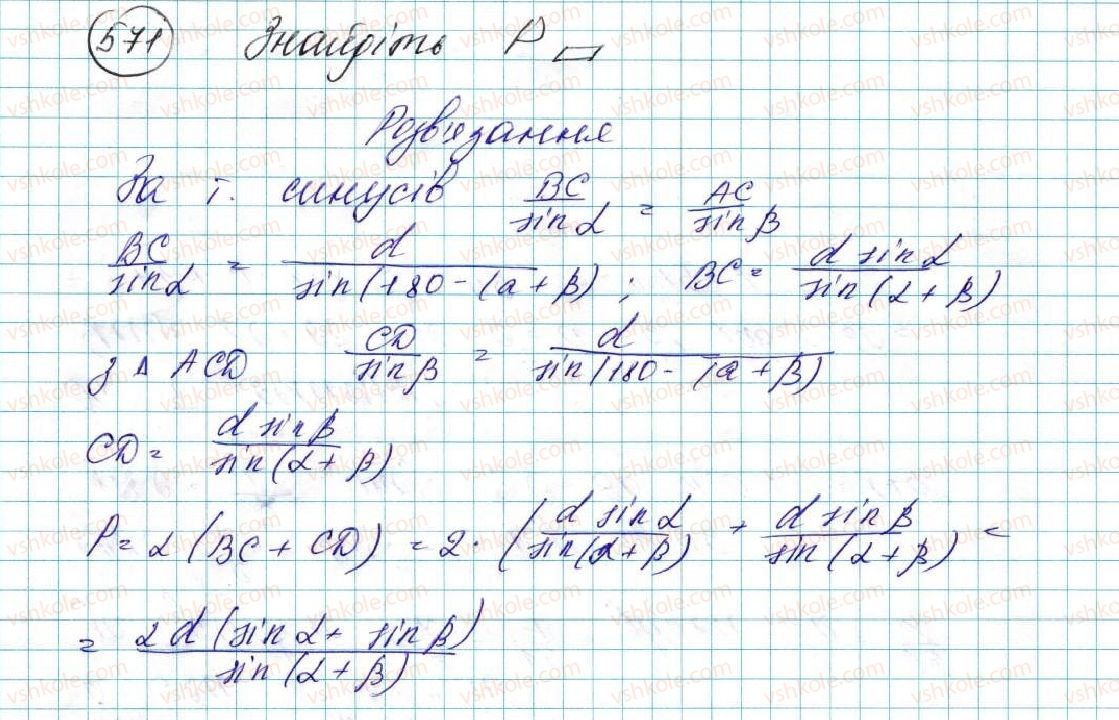 571 Знайдіть P ▱
Розв'язання
За т. синусів BC/sin α = AC/sin β
BC/sin α = d/sin(180 - (α + β) ; BC = d sin α/sin(α + β)
з Δ ACD CD/sin β = d/sin(180 - (α + β)
CD = d sin β/sin(α + β)
P = 2(BC + CD) = 2 · (d sin α/sin(α + β) + d sin β/sin(α + β)) =
= 2d(sin α + sin β)/sin(α + β)